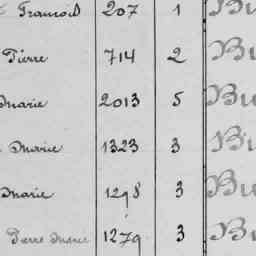 François 207 1 Bu
Pierre 714 2 Bu
Marie 2013 5 Bu
Marie 1323 3 Bu
Marie 1298 3 Bu
Pierre Marie 1279 3 Bu